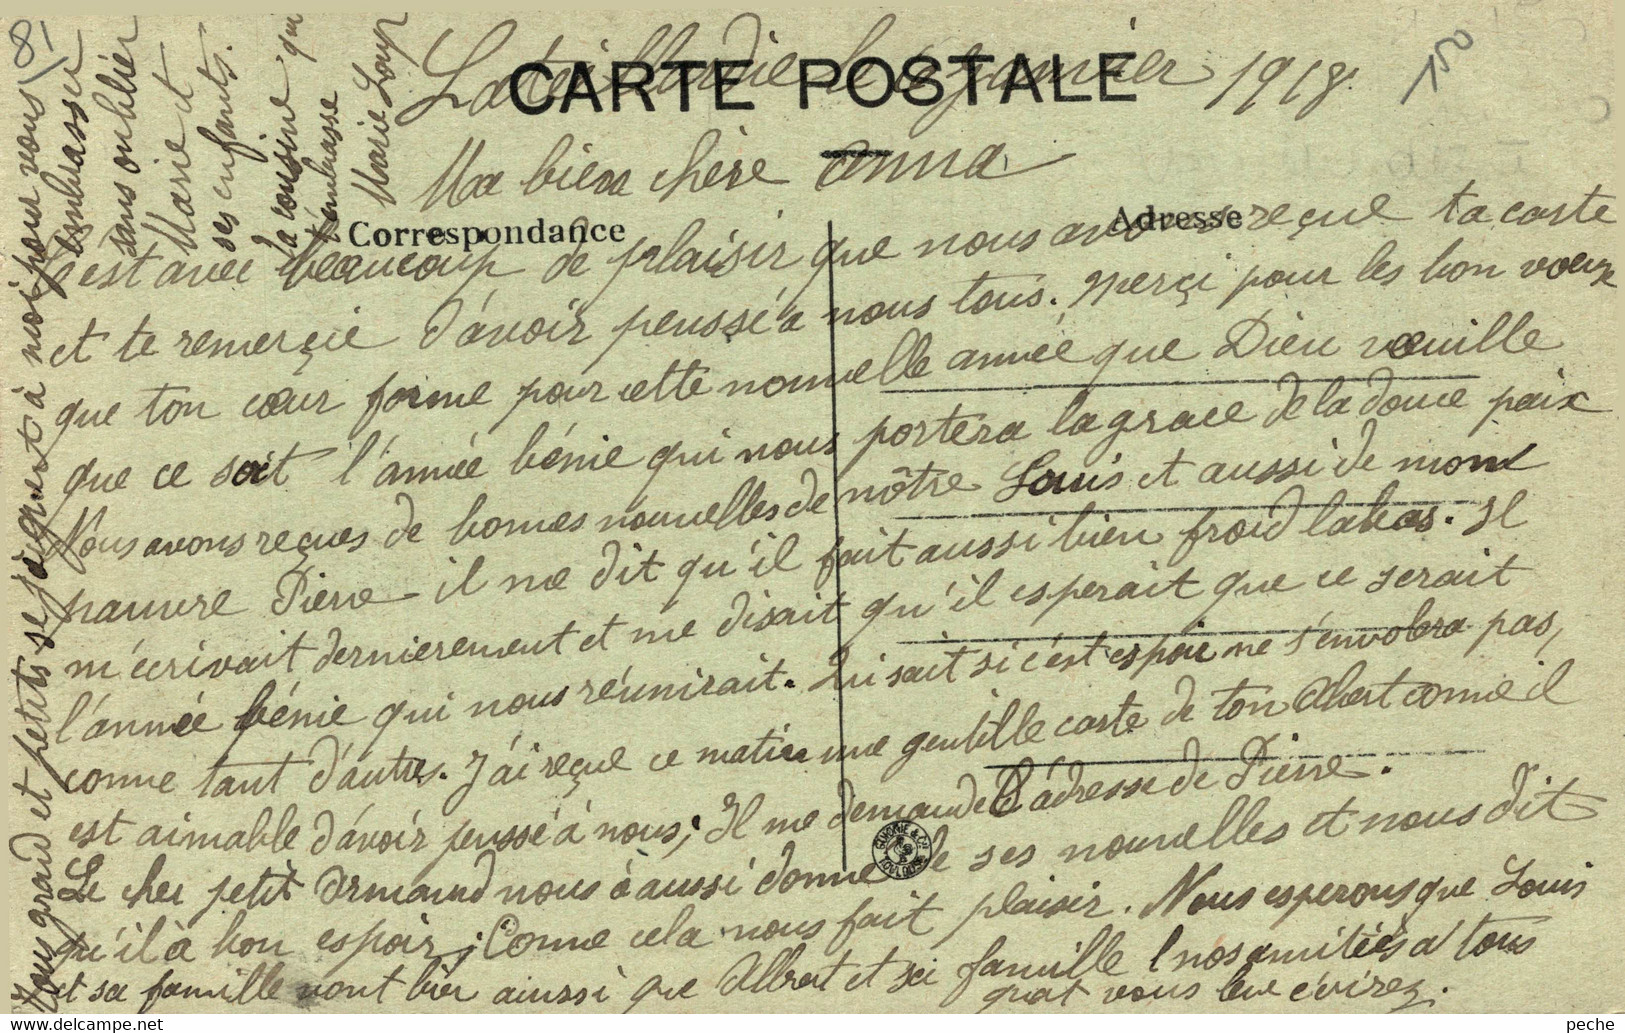 81
150
CARTE POSTALE
le 6 Janvier 1918.
Ma bien chère Anna
Correspondance
Adresse
c'est avec beaucoup de plaisir que nous avons reçue ta carte
et te remerçie d'avoir penssé a nous tous. Merçi pour les bon voeux
que ton cœur forme pour cette nouvelle année que Dieu vœuille
que ce soit l'année bénie qui nous portera la grace de la douce paix
Nous avons reçues de bonnes nouvelles de nôtre Louis et aussi de mont
pauvre Pierre il me dit qu'il fait aussi bien froid labas. Il
m'écrivait dernierement et me disait qu'il esperait que ce serait
l'année bénie qui nous réunirait. Qui sait si c'est espoir ne s'envolera pas,
comme tant d'autres. J'ai reçue ce matin une gentille carte de ton Albert comme il
est aimable d'avoir penssé à nous; Il me demande l'adresse de Pierre.
Le cher petit Armand nous à aussi donné de ses nouvelles et nous dit
qu'il à bon espoir; Comme cela nous fait plaisir. Nous esperons que Louis
et sa famille vont bien ainssi que Albert et sa famille nos amitiés a tous
quat vous leur écrirez.
Tous grand et petits se joignent à moi pour vous
embrasser
sans oublier
Marie et
ses enfants.
la cousine qui
t'embrasse
Marie Loup
LABOUCHE
TOULOUSE
peche